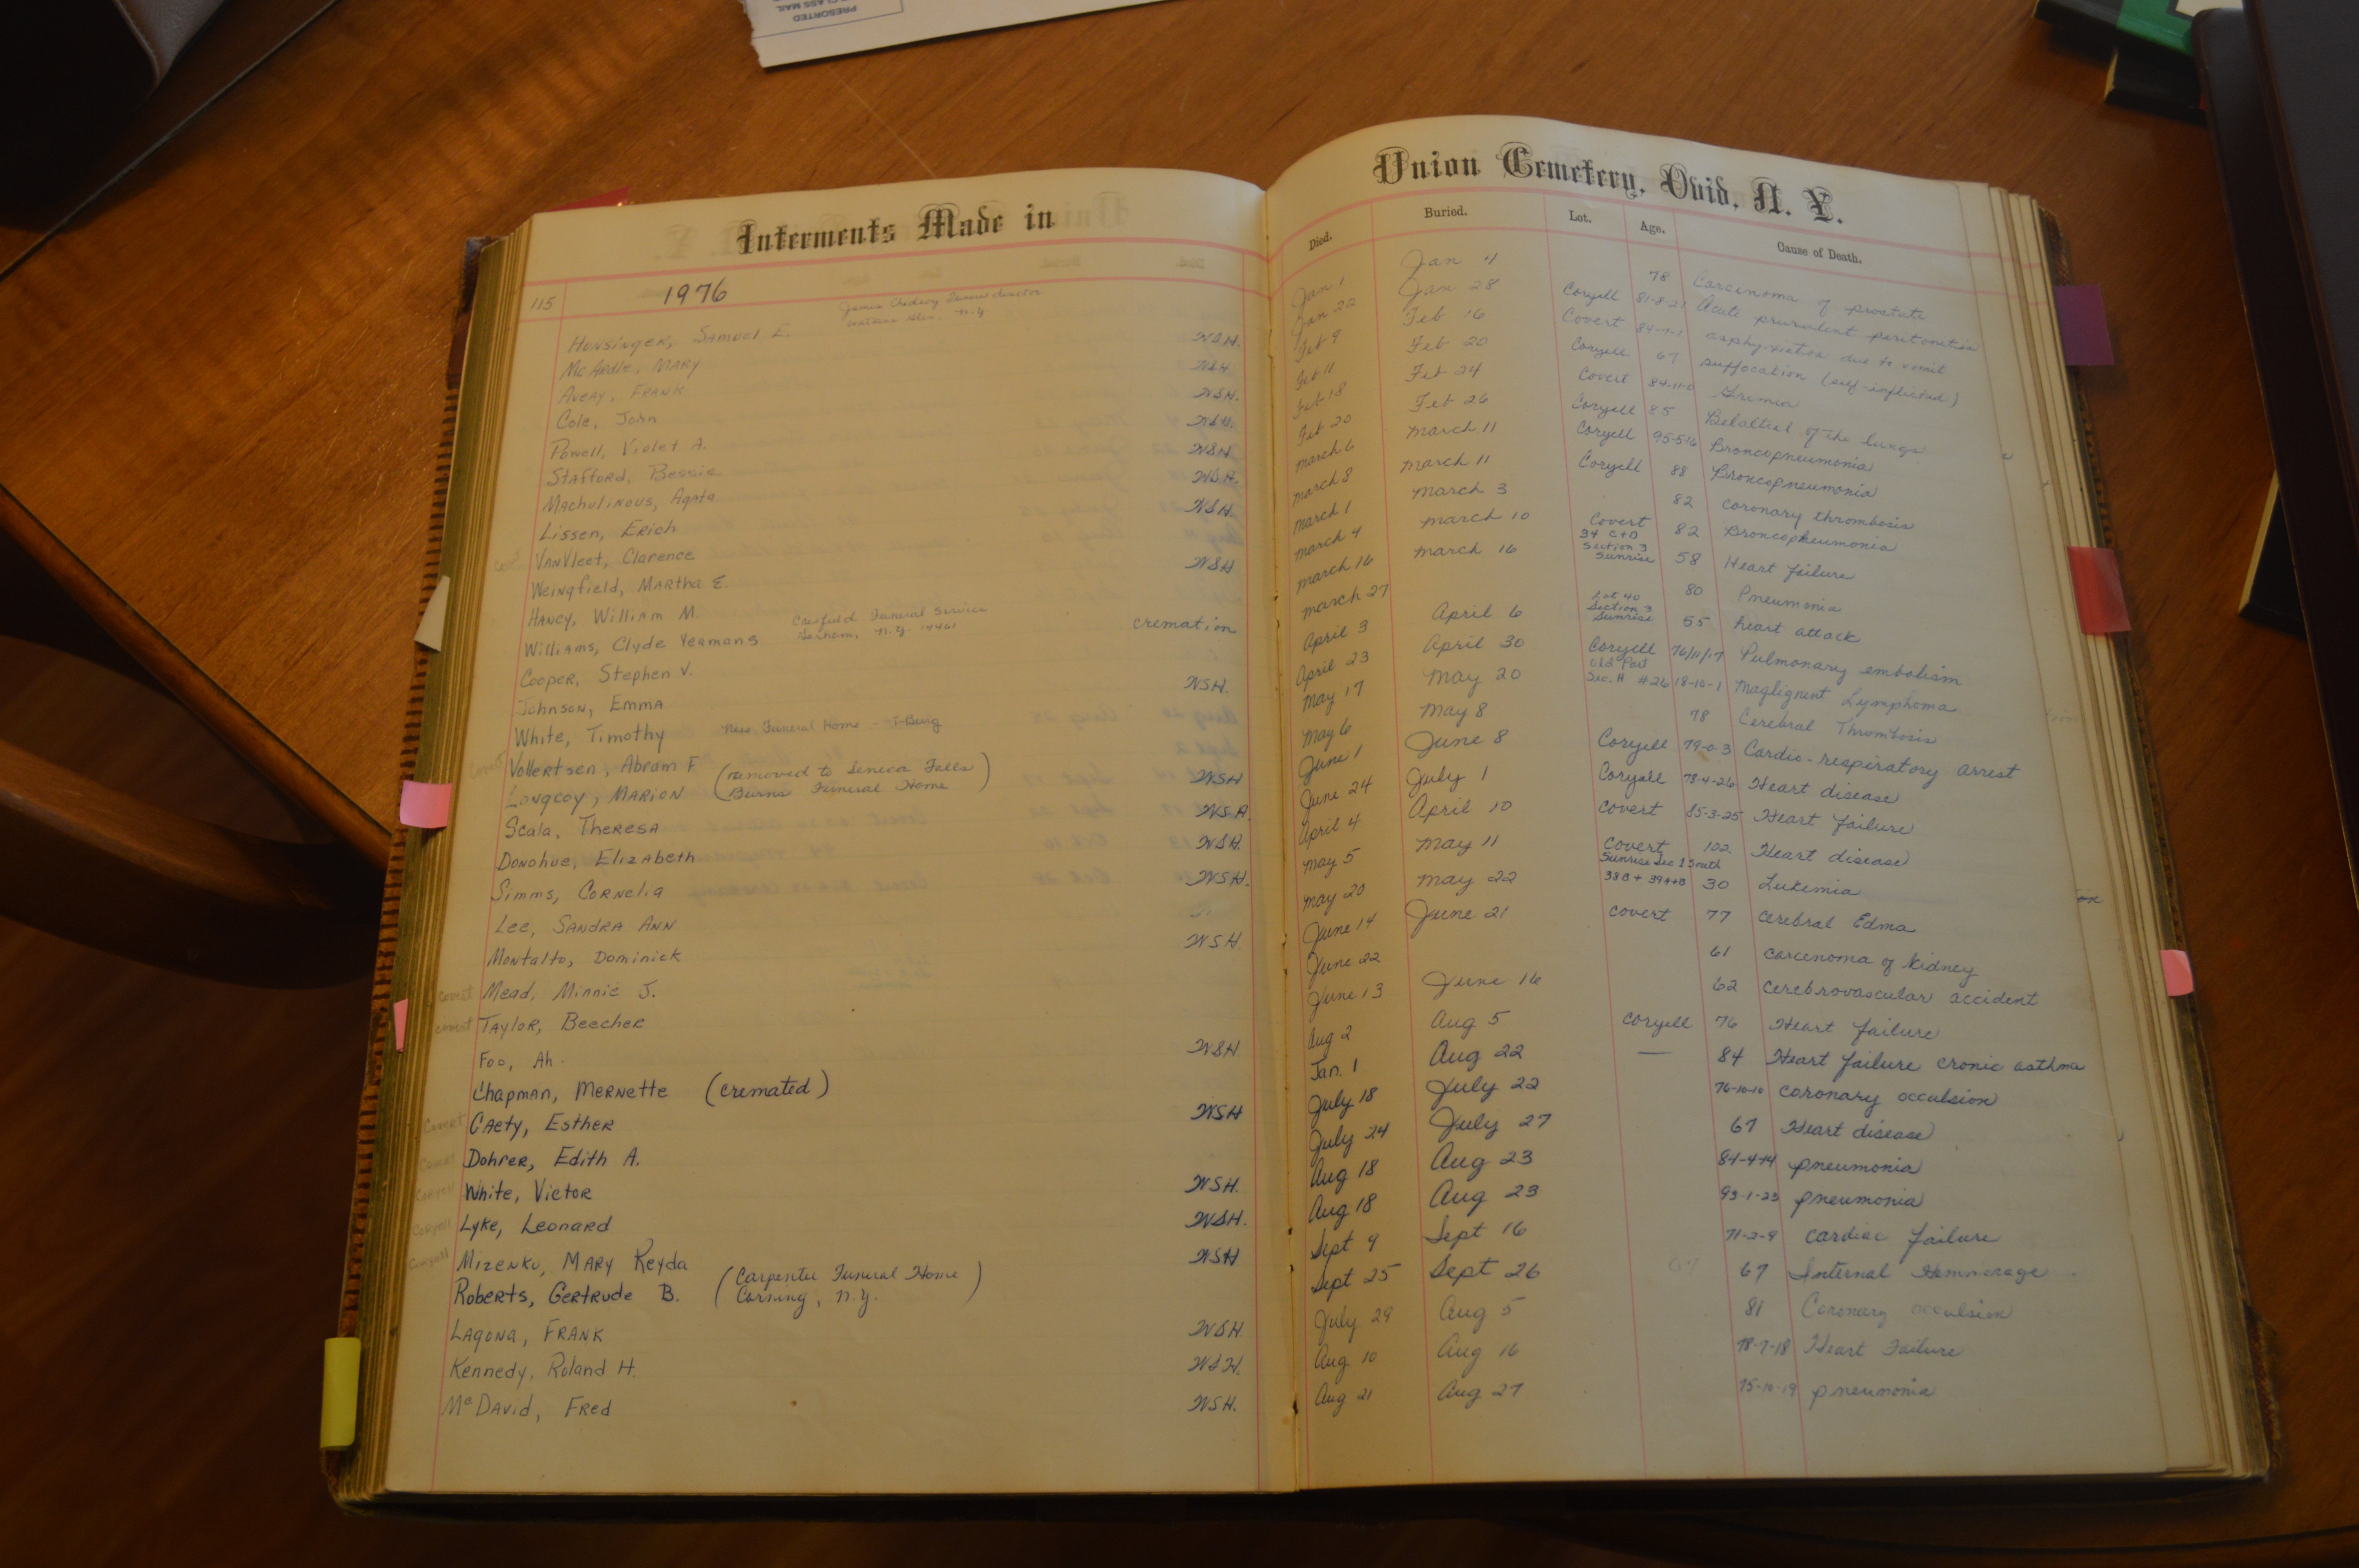 PRESORTED
CLASS MAIL
Interments Made in
115 1976
Hunsinger, Samuel E. Watkins Glen, N.Y. W.S.H.
McArdle, Mary W.S.H.
Avery, Frank W.S.H.
Cole, John W.S.H.
Powell, Violet A. W.S.H.
Stafford, Bessie W.S.H.
Machulinous, Agata W.S.H.
Lissen, Erich
VanVleet, Clarence W.S.H
Weingfield, Martha E.
Haney, William M. Funeral Service
Williams, Clyde Yeamans N.Y. cremation
Cooper, Stephen V.
Johnson, Emma W.S.H.
White, Timothy Funeral Home - T-Burg
Covert Vollertsen, Abram F (removed to Seneca Falls
Longcoy, Marion Burns Funeral Home) WSH
Scala, Theresa W.S.H.
Donohue, Elizabeth W.S.H.
Simms, Cornelia W.S.H.
Lee, Sandra Ann
Montalto, Dominick W.S.H.
Covert Mead, Minnie J.
Covert Taylor, Beecher
Foo, Ah. W.S.H
Chapman, Mernette (cremated)
Covert Gaety, Esther WSH
Covert Dohrer, Edith A.
Coryell White, Victor W.S.H.
Coryell Lyke, Leonard W.S.H.
Coryell Mizenko, Mary Keyda WSH
Roberts, Gertrude B. (Carpenter Funeral Home
Corning, N.Y.)
Lagona, Frank W.S.H.
Kennedy, Roland H. W.S.H.
McDavid, Fred W.S.H.
Union Cemetery, Ovid, N. Y.
Died. Buried. Lot. Age. Cause of Death.
Jan 1 Jan 4 78 Carcinoma of prostate
Jan 22 Jan 28 Coryell 81-8-21 Acute purulent peritonitis
Feb 9 Feb 16 Covert 84-7-1 asphyxiation due to vomit
Feb 11 Feb 20 Coryell 67 suffocation (self-inflicted)
Feb 18 Feb 24 Covert 84-11-0
Feb 20 Feb 26 Coryell 85 of the lungs
March 6 March 11 Coryell 95-5-16 Broncopneumonia
March 8 March 11 Coryell 88 Broncopneumonia
March 1 March 3 82 coronary thrombosis
March 4 March 10 Covert 82 Broncopneumonia
March 16 March 16 34 C+D Section 3 Sunrise 58 Heart failure
March 27 80 Pneumonia
April 3 April 6 Lot 40 Section 3 Sunrise 55 heart attack
April 23 April 30 Coryell 76/11/17 Pulmonary embolism
May 17 May 20 Old Part Sec. H #26 18-10-1 Maglignent Lymphoma
May 6 May 8 78 Cerebral Thrombosis
June 1 June 8 Coryell 79-0-3 Cardio-respiratory arrest
June 24 July 1 Coryell 78-4-26 Heart disease
April 4 April 10 Covert 85-3-25 Heart failure
May 5 May 11 Covert 102 Heart disease
May 20 May 22 Sunrise Sec 1 South 38B + 39A+B 30 Lukemia
June 14 June 21 Covert 77 cerebral Edma
June 22 61 carcenoma of kidney
June 13 June 16 62 cerebrovascular accident
Aug 2 Aug 5 Coryell 76 Heart failure
Jan. 1 Aug 22 — 84 Heart failure cronic asthma
July 18 July 22 76-10-10 coronary occulsion
July 24 July 27 67 Heart disease
Aug 18 Aug 23 84-4-14 pneumonia
Aug 18 Aug 23 93-1-23 pneumonia
Sept 9 Sept 16 71-2-9 cardiac failure
Sept 25 Sept 26 67 67 Internal Hemmerage
July 29 Aug 5 81 Coronary occulsion
Aug 10 Aug 16 78-7-18 Heart Failure
Aug 21 Aug 27 75-10-19 pneumonia